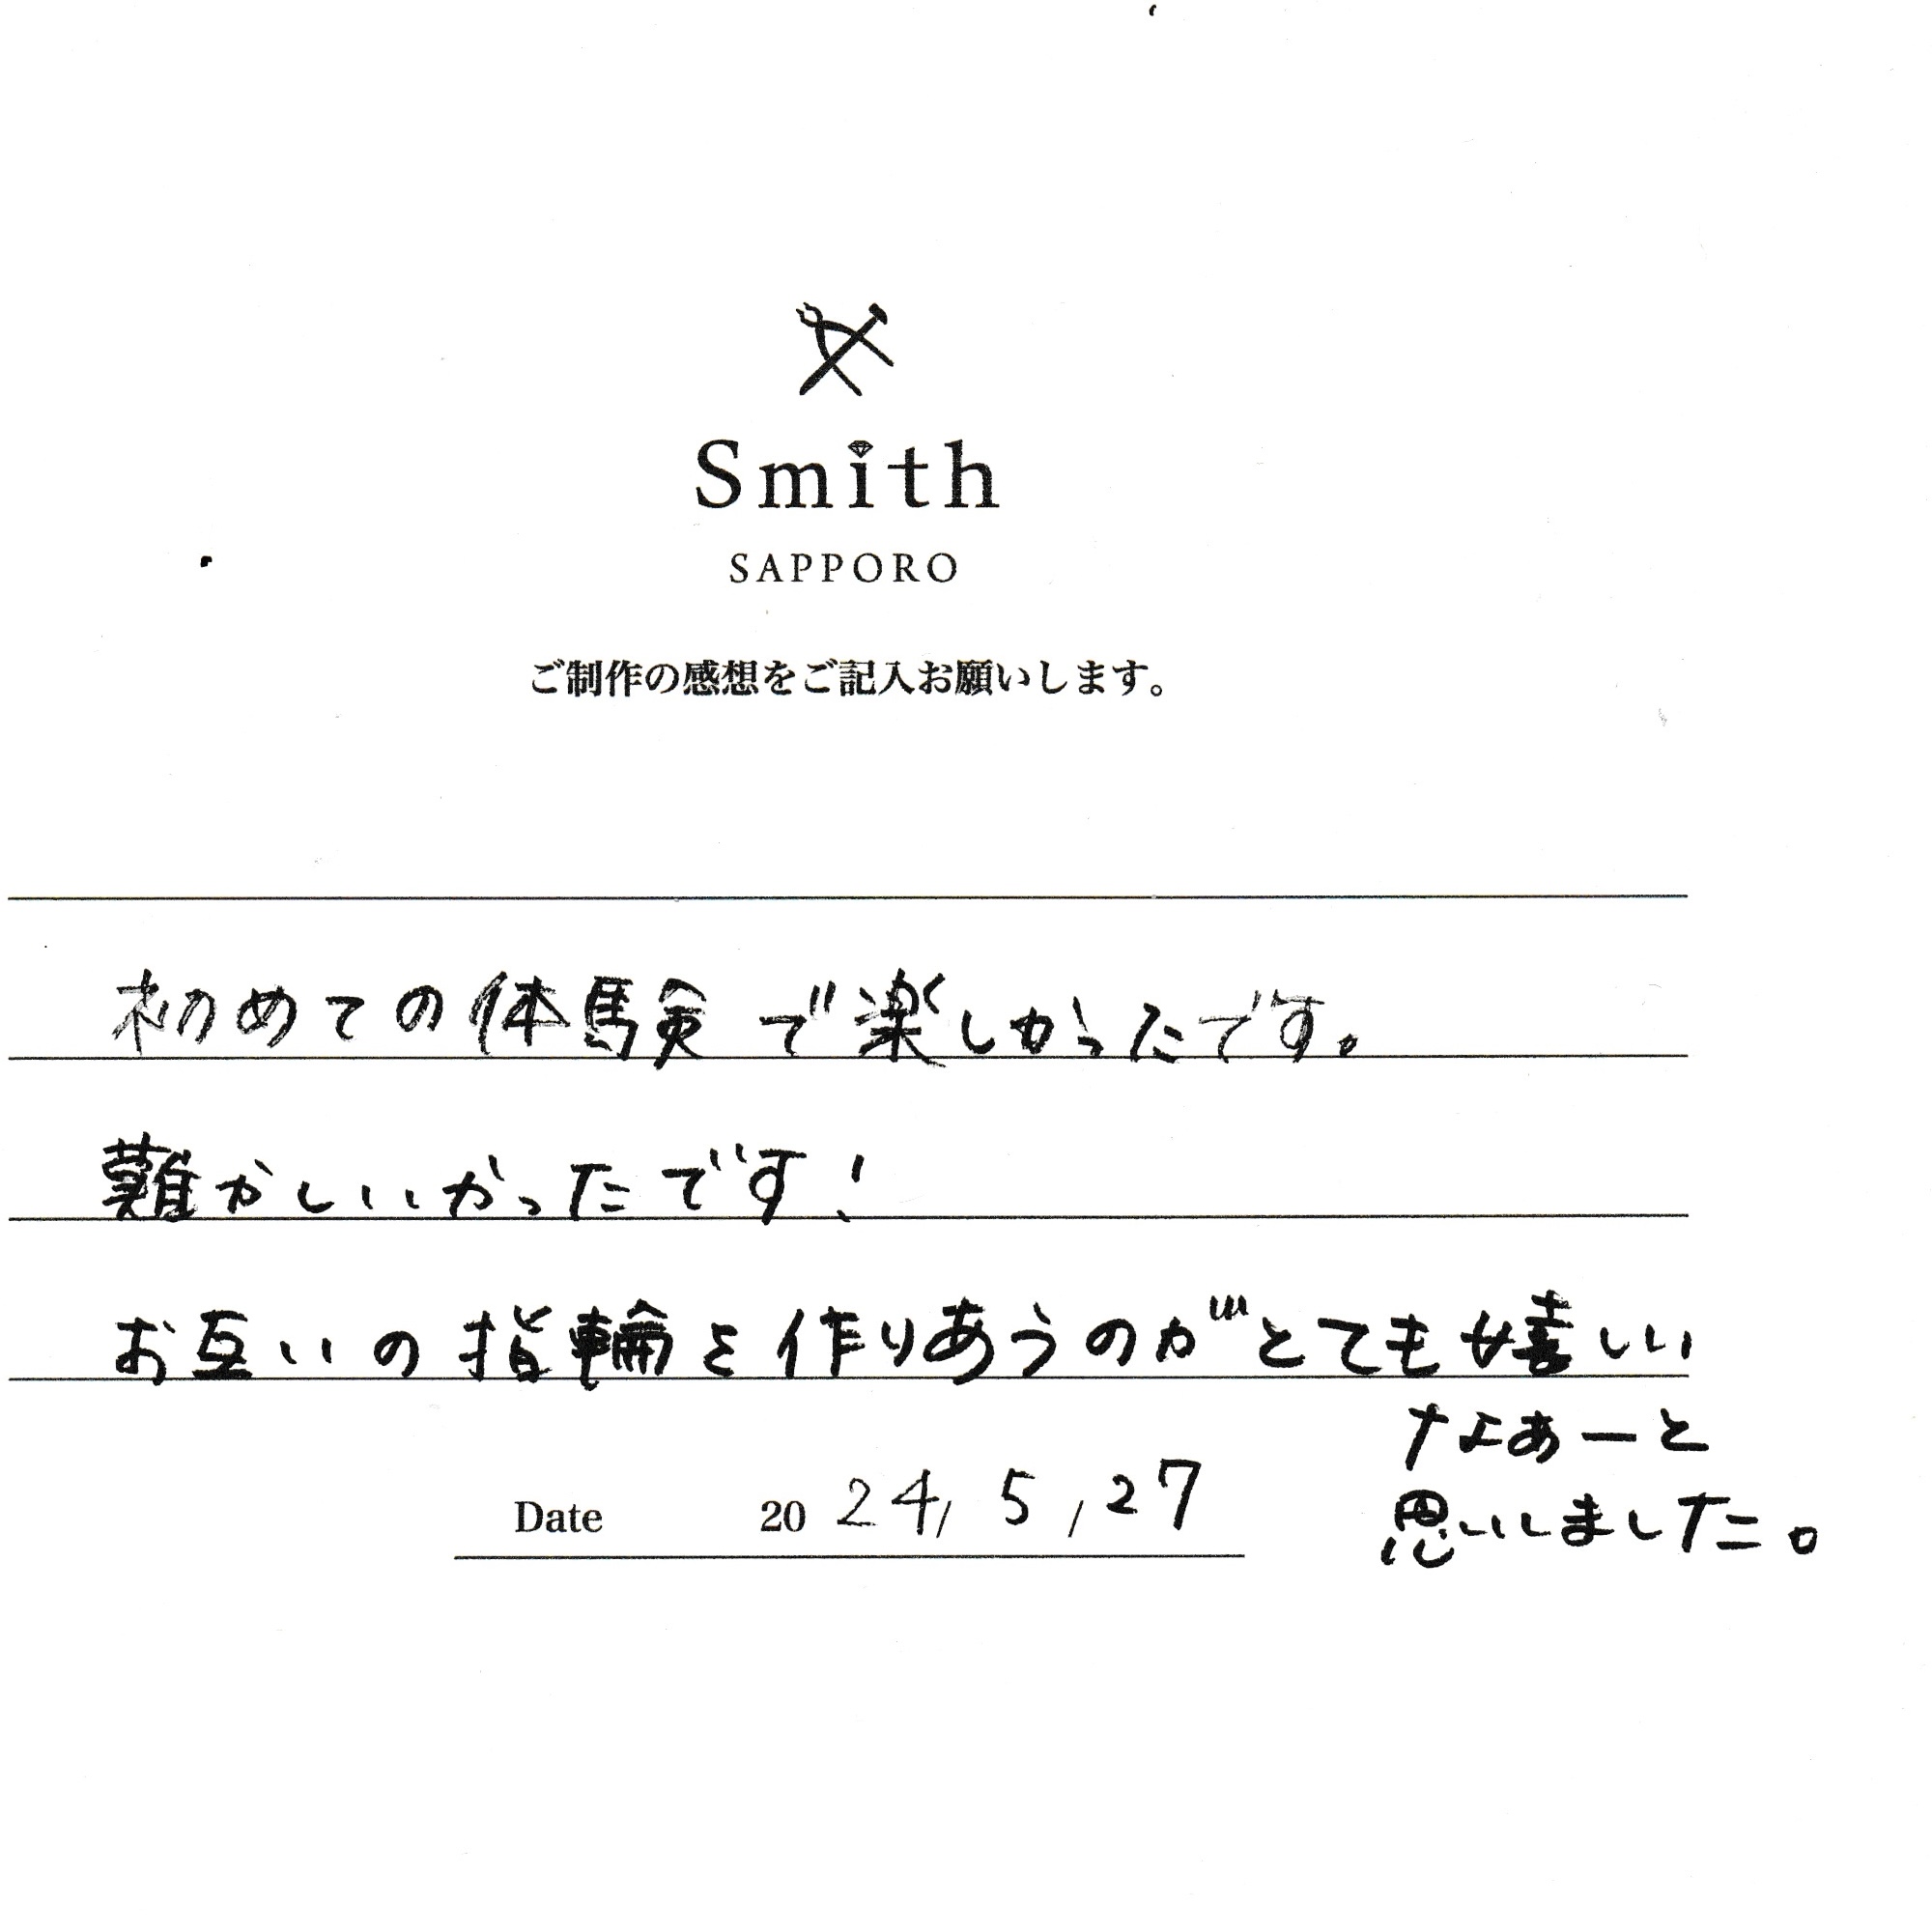 Smith
SAPPORO
ご制作の感想をご記入お願いします。
初めての体験で楽しかったです。
難かしいかったです!
お互いの指輪を作りあうのがとても嬉しい
なぁーと
思いしました。
Date 2024/5/27